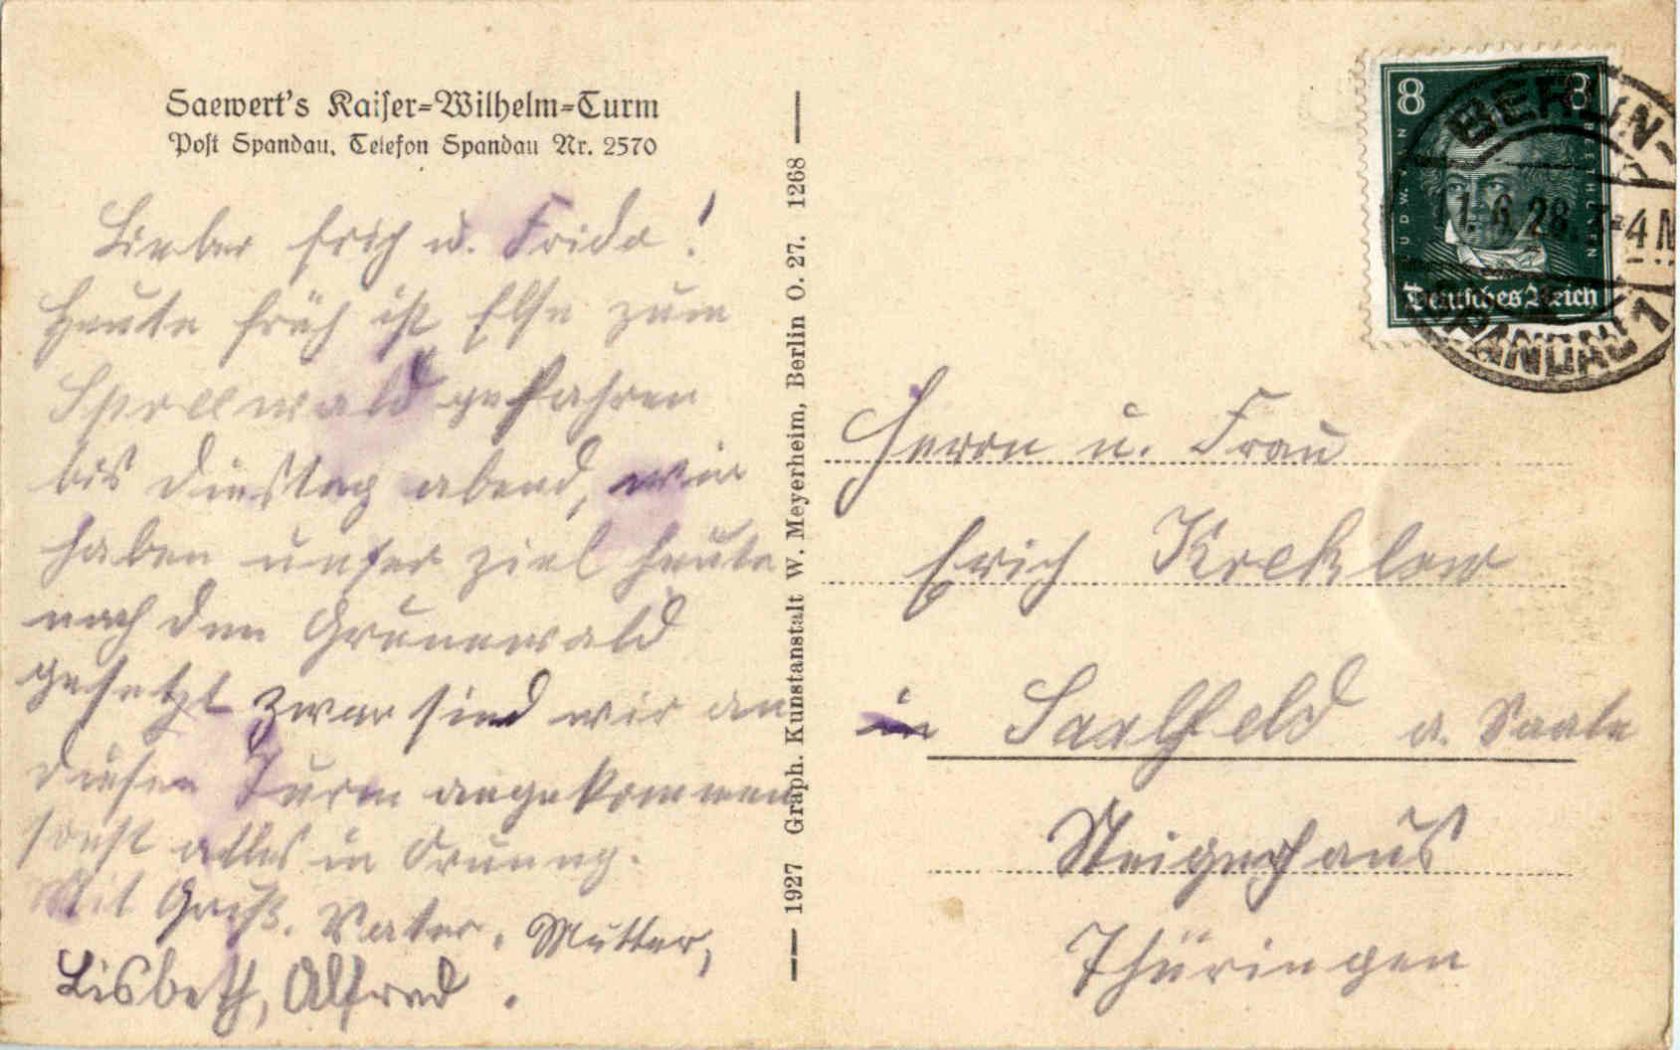 Saewert's Kaiser-Wilhelm-Turm
Post Spandau. Telefon Spandau Nr. 2570
Lieber Erich u. Frida!
Heute früh ist Else zum
Spreewald gefahren
bis Dienstag abend, wir
haben unser Ziel heute
nach den Grunewald
gesetzt zwar sind wir an
diesen Turm angekommen
sonst alles in Ornung.
Mit Gruß. Vater, Mutter,
Lisbeth, Alfred.
1927 Graph. Kunstanstalt W. Meyerheim, Berlin O. 27. 1268
8 8
LUDW. VAN BEETHOVEN
Deutsches Reich
BERLIN-
11.6.28. 3-4 N
SPANDAU 1
Herrn u. Frau
Erich
in Saalfeld a. Saale
Steigerhaus
Thüringen